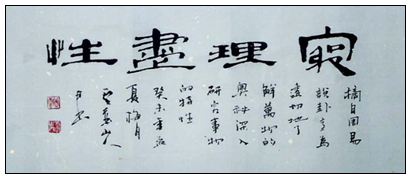 窮理盡性
摘自周易
說卦意為
透切地了
解萬物的
奧秘深入
研究事物
的特性
癸未季
夏梅月